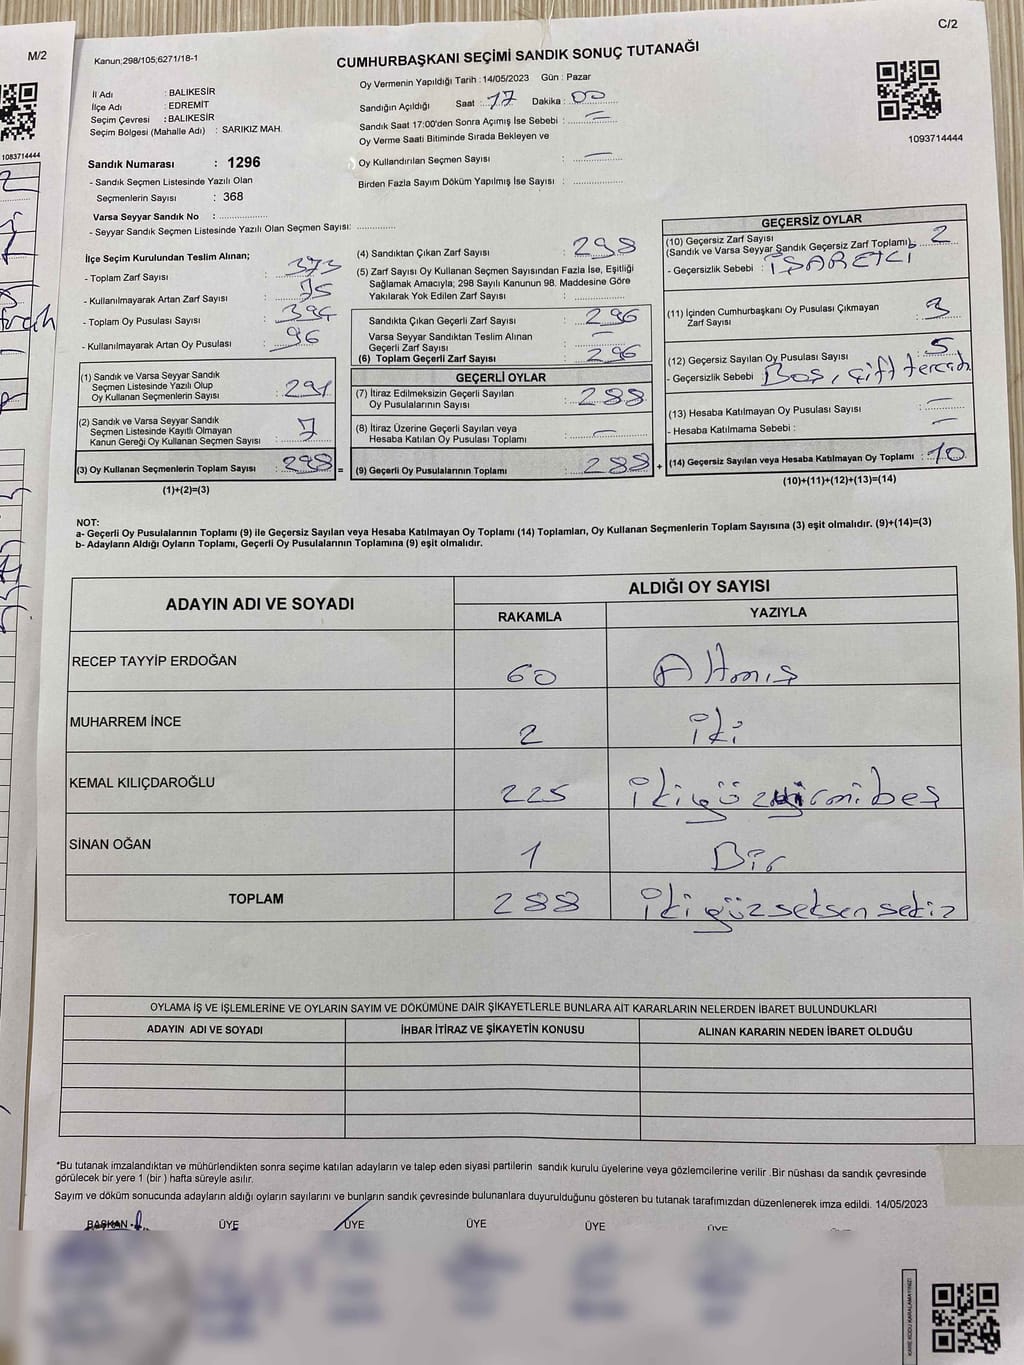 M/2
1083714444
C/2
Kanun;298/105;6271/18-1
CUMHURBAŞKANI SEÇİMİ SANDIK SONUÇ TUTANAĞI
İl Adı : BALIKESİR
İlçe Adı : EDREMİT
Seçim Çevresi : BALIKESİR
Seçim Bölgesi (Mahalle Adı) : SARIKIZ MAH.
Oy Vermenin Yapıldığı Tarih : 14/05/2023 Gün : Pazar
Sandığın Açıldığı Saat : 17 Dakika : 00
Sandık Saat 17:00'den Sonra Açımış İse Sebebi : —
Oy Verme Saati Bitiminde Sırada Bekleyen ve
Oy Kullandırılan Seçmen Sayısı : —
Birden Fazla Sayım Döküm Yapılmış İse Sayısı :
1093714444
Sandık Numarası : 1296
- Sandık Seçmen Listesinde Yazılı Olan
Seçmenlerin Sayısı : 368
Varsa Seyyar Sandık No :
- Seyyar Sandık Seçmen Listesinde Yazılı Olan Seçmen Sayısı:
İlçe Seçim Kurulundan Teslim Alınan;
- Toplam Zarf Sayısı : 373
- Kullanılmayarak Artan Zarf Sayısı : 75
- Toplam Oy Pusulası Sayısı : 394
- Kullanılmayarak Artan Oy Pusulası : 96
(1) Sandık ve Varsa Seyyar Sandık
Seçmen Listesinde Yazılı Olup
Oy Kullanan Seçmenlerin Sayısı : 291
(2) Sandık ve Varsa Seyyar Sandık
Seçmen Listesinde Kayıtlı Olmayan
Kanun Gereği Oy Kullanan Seçmen Sayısı : 7
(3) Oy Kullanan Seçmenlerin Toplam Sayısı : 298 =
(1)+(2)=(3)
(4) Sandıktan Çıkan Zarf Sayısı : 298
(5) Zarf Sayısı Oy Kullanan Seçmen Sayısından Fazla İse, Eşitliği
Sağlamak Amacıyla; 298 Sayılı Kanunun 98. Maddesine Göre
Yakılarak Yok Edilen Zarf Sayısı :
Sandıkta Çıkan Geçerli Zarf Sayısı : 296
Varsa Seyyar Sandıktan Teslim Alınan
Geçerli Zarf Sayısı : —
(6) Toplam Geçerli Zarf Sayısı : 296
GEÇERLİ OYLAR
(7) İtiraz Edilmeksizin Geçerli Sayılan
Oy Pusulalarının Sayısı : 288
(8) İtiraz Üzerine Geçerli Sayılan veya
Hesaba Katılan Oy Pusulası Toplamı : —
(9) Geçerli Oy Pusulalarının Toplamı : 288 +
GEÇERSİZ OYLAR
(10) Geçersiz Zarf Sayısı
(Sandık ve Varsa Seyyar Sandık Geçersiz Zarf Toplamı) : 2
- Geçersizlik Sebebi : İŞARETLİ
(11) İçinden Cumhurbaşkanı Oy Pusulası Çıkmayan
Zarf Sayısı : 3
(12) Geçersiz Sayılan Oy Pusulası Sayısı : 5
- Geçersizlik Sebebi : Boş, çift tercih
(13) Hesaba Katılmayan Oy Pusulası Sayısı : —
- Hesaba Katılmama Sebebi : —
(14) Geçersiz Sayılan veya Hesaba Katılmayan Oy Toplamı : 10
(10)+(11)+(12)+(13)=(14)
NOT:
a- Geçerli Oy Pusulalarının Toplamı (9) ile Geçersiz Sayılan veya Hesaba Katılmayan Oy Toplamı (14) Toplamları, Oy Kullanan Seçmenlerin Toplam Sayısına (3) eşit olmalıdır. (9)+(14)=(3)
b- Adayların Aldığı Oyların Toplamı, Geçerli Oy Pusulalarının Toplamına (9) eşit olmalıdır.
ADAYIN ADI VE SOYADI ALDIĞI OY SAYISI
RAKAMLA YAZIYLA
RECEP TAYYİP ERDOĞAN 60 Altmış
MUHARREM İNCE 2 iki
KEMAL KILIÇDAROĞLU 225 ikiyüzyirmibeş
SİNAN OĞAN 1 Bir
TOPLAM 288 ikiyüzseksensekiz
OYLAMA İŞ VE İŞLEMLERİNE VE OYLARIN SAYIM VE DÖKÜMÜNE DAİR ŞİKAYETLERLE BUNLARA AİT KARARLARIN NELERDEN İBARET BULUNDUKLARI
ADAYIN ADI VE SOYADI İHBAR İTİRAZ VE ŞİKAYETİN KONUSU ALINAN KARARIN NEDEN İBARET OLDUĞU
*Bu tutanak imzalandıktan ve mühürlendikten sonra seçime katılan adayların ve talep eden siyasi partilerin sandık kurulu üyelerine veya gözlemcilerine verilir .Bir nüshası da sandık çevresinde
görülecek bir yere 1 (bir ) hafta süreyle asılır.
Sayım ve döküm sonucunda adayların aldığı oyların sayılarını ve bunların sandık çevresinde bulunanlara duyurulduğunu gösteren bu tutanak tarafımızdan düzenlenerek imza edildi. 14/05/2023
BAŞKAN ÜYE ÜYE ÜYE ÜYE ÜYE
KARE KODU KARALAMAYINIZ!